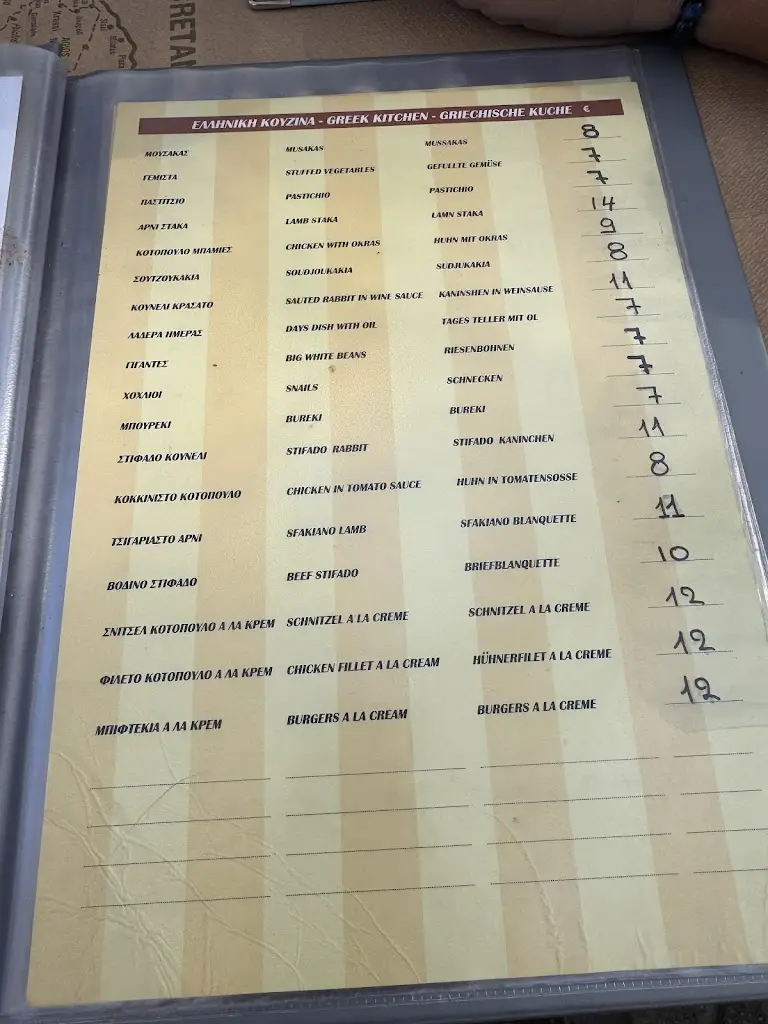 PRETAN
ΕΛΛΗΝΙΚΗ ΚΟΥΖΙΝΑ - GREEK KITCHEN - GRIECHISCHE KUCHE €
ΜΟΥΣΑΚΑΣ MUSAKAS MUSSAKAS 8
ΓΕΜΙΣΤΑ STUFFED VEGETABLES GEFULLTE GEMÜSE 7
ΠΑΣΤΙΤΣΙΟ PASTICHIO PASTICHIO 7
ΑΡΝΙ ΣΤΑΚΑ LAMB STAKA LAMN STAKA 14
ΚΟΤΟΠΟΥΛΟ ΜΠΑΜΙΕΣ CHICKEN WITH OKRAS HUHN MIT OKRAS 9
ΣΟΥΤΖΟΥΚΑΚΙΑ SOUDJOUKAKIA SUDJUKAKIA 8
ΚΟΥΝΕΛΙ ΚΡΑΣΑΤΟ SAUTED RABBIT IN WINE SAUCE KANINSHEN IN WEINSAUSE 11
ΛΑΔΕΡΑ ΗΜΕΡΑΣ DAYS DISH WITH OIL TAGES TELLER MIT OL 7
ΓΙΓΑΝΤΕΣ BIG WHITE BEANS RIESENBOHNEN 7
ΧΟΧΛΙΟΙ SNAILS SCHNECKEN 7
ΜΠΟΥΡΕΚΙ BUREKI BUREKI 7
ΣΤΙΦΑΔΟ ΚΟΥΝΕΛΙ STIFADO RABBIT STIFADO KANINCHEN 11
ΚΟΚΚΙΝΙΣΤΟ ΚΟΤΟΠΟΥΛΟ CHICKEN IN TOMATO SAUCE HUHN IN TOMATENSOSSE 8
ΤΣΙΓΑΡΙΑΣΤΟ ΑΡΝΙ SFAKIANO LAMB SFAKIANO BLANQUETTE 11
ΒΟΔΙΝΟ ΣΤΙΦΑΔΟ BEEF STIFADO BRIEFBLANQUETTE 10
ΣΝΙΤΣΕΛ ΚΟΤΟΠΟΥΛΟ Α ΛΑ ΚΡΕΜ SCHNITZEL A LA CREME SCHNITZEL A LA CREME 12
ΦΙΛΕΤΟ ΚΟΤΟΠΟΥΛΟ Α ΛΑ ΚΡΕΜ CHICKEN FILLET A LA CREAM HÜHNERFILET A LA CREME 12
ΜΠΙΦΤΕΚΙΑ Α ΛΑ ΚΡΕΜ BURGERS A LA CREAM BURGERS A LA CREME 12